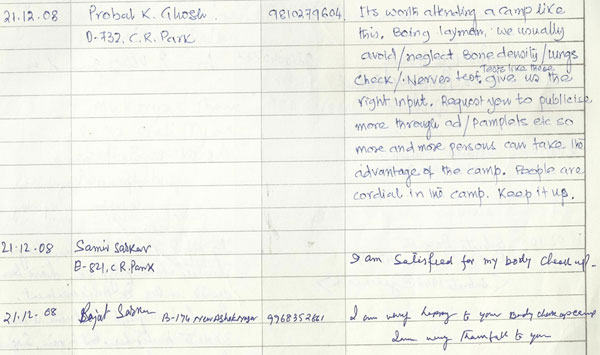 21.12.08 Probal K. Ghosh 9810279604 Its worth attending a camp like
D-732, C.R. Park this. Being layman, we usually
avoid/neglect Bone density/Lungs
check/Nerves test. Tests like these give us the
right input. Request you to publicise
more through ad/pamplets etc so
more and more persons can take the
advantage of the camp. People are
cordial in the camp. Keep it up.
21.12.08 Samir Sarkar
E-821, C.R. Park I am Satisfied for my body Check up
21.12.08 B-174 New Ashok nagar I am very happy to your Body check up
I am very Thankfull to you